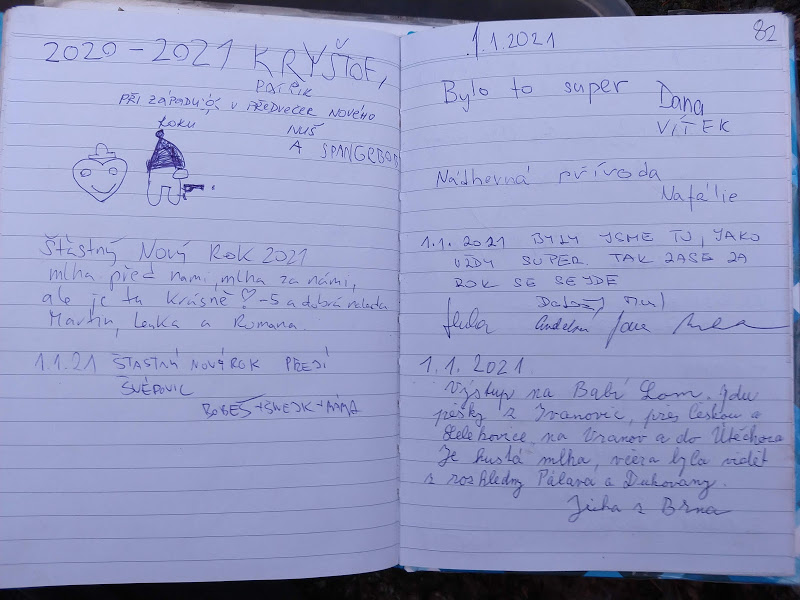 2020-2021 KRYŠTOF,
PATRIK
PŘI ZÁPADU V PŘEDVEČER NOVÉHO
ROKU
NUŠ
A SPANGEBOB
Šťastný Nový Rok 2021
mlha před nami, mlha za námi,
ale je tu krásně ♡ -5 a dobrá nálada
Martin, Lenka a Romana.
1.1.21 ŠTASTNÝ NOVÝ ROK PŘEJÍ
BOBEŠ + + MÁMA
1.1.2021
82
Bylo to super Dana
VÍTEK
Nádherná přívoda
Natálie
1.1. 2021 BYLY JSME TU, JAKO
VŽDY SUPER. TAK ZASE ZA
ROK SE SEJDE
1. 1. 2021.
Výstup na Babí Lom. Jdu
pěšky z Ivanovic, přes Českou a
Lelekovice, na Vranov a do Útěchova
Je hustá mlha, včera byla vidět
z rozhledny Pálava a Dukovany.
Jirka z Brna